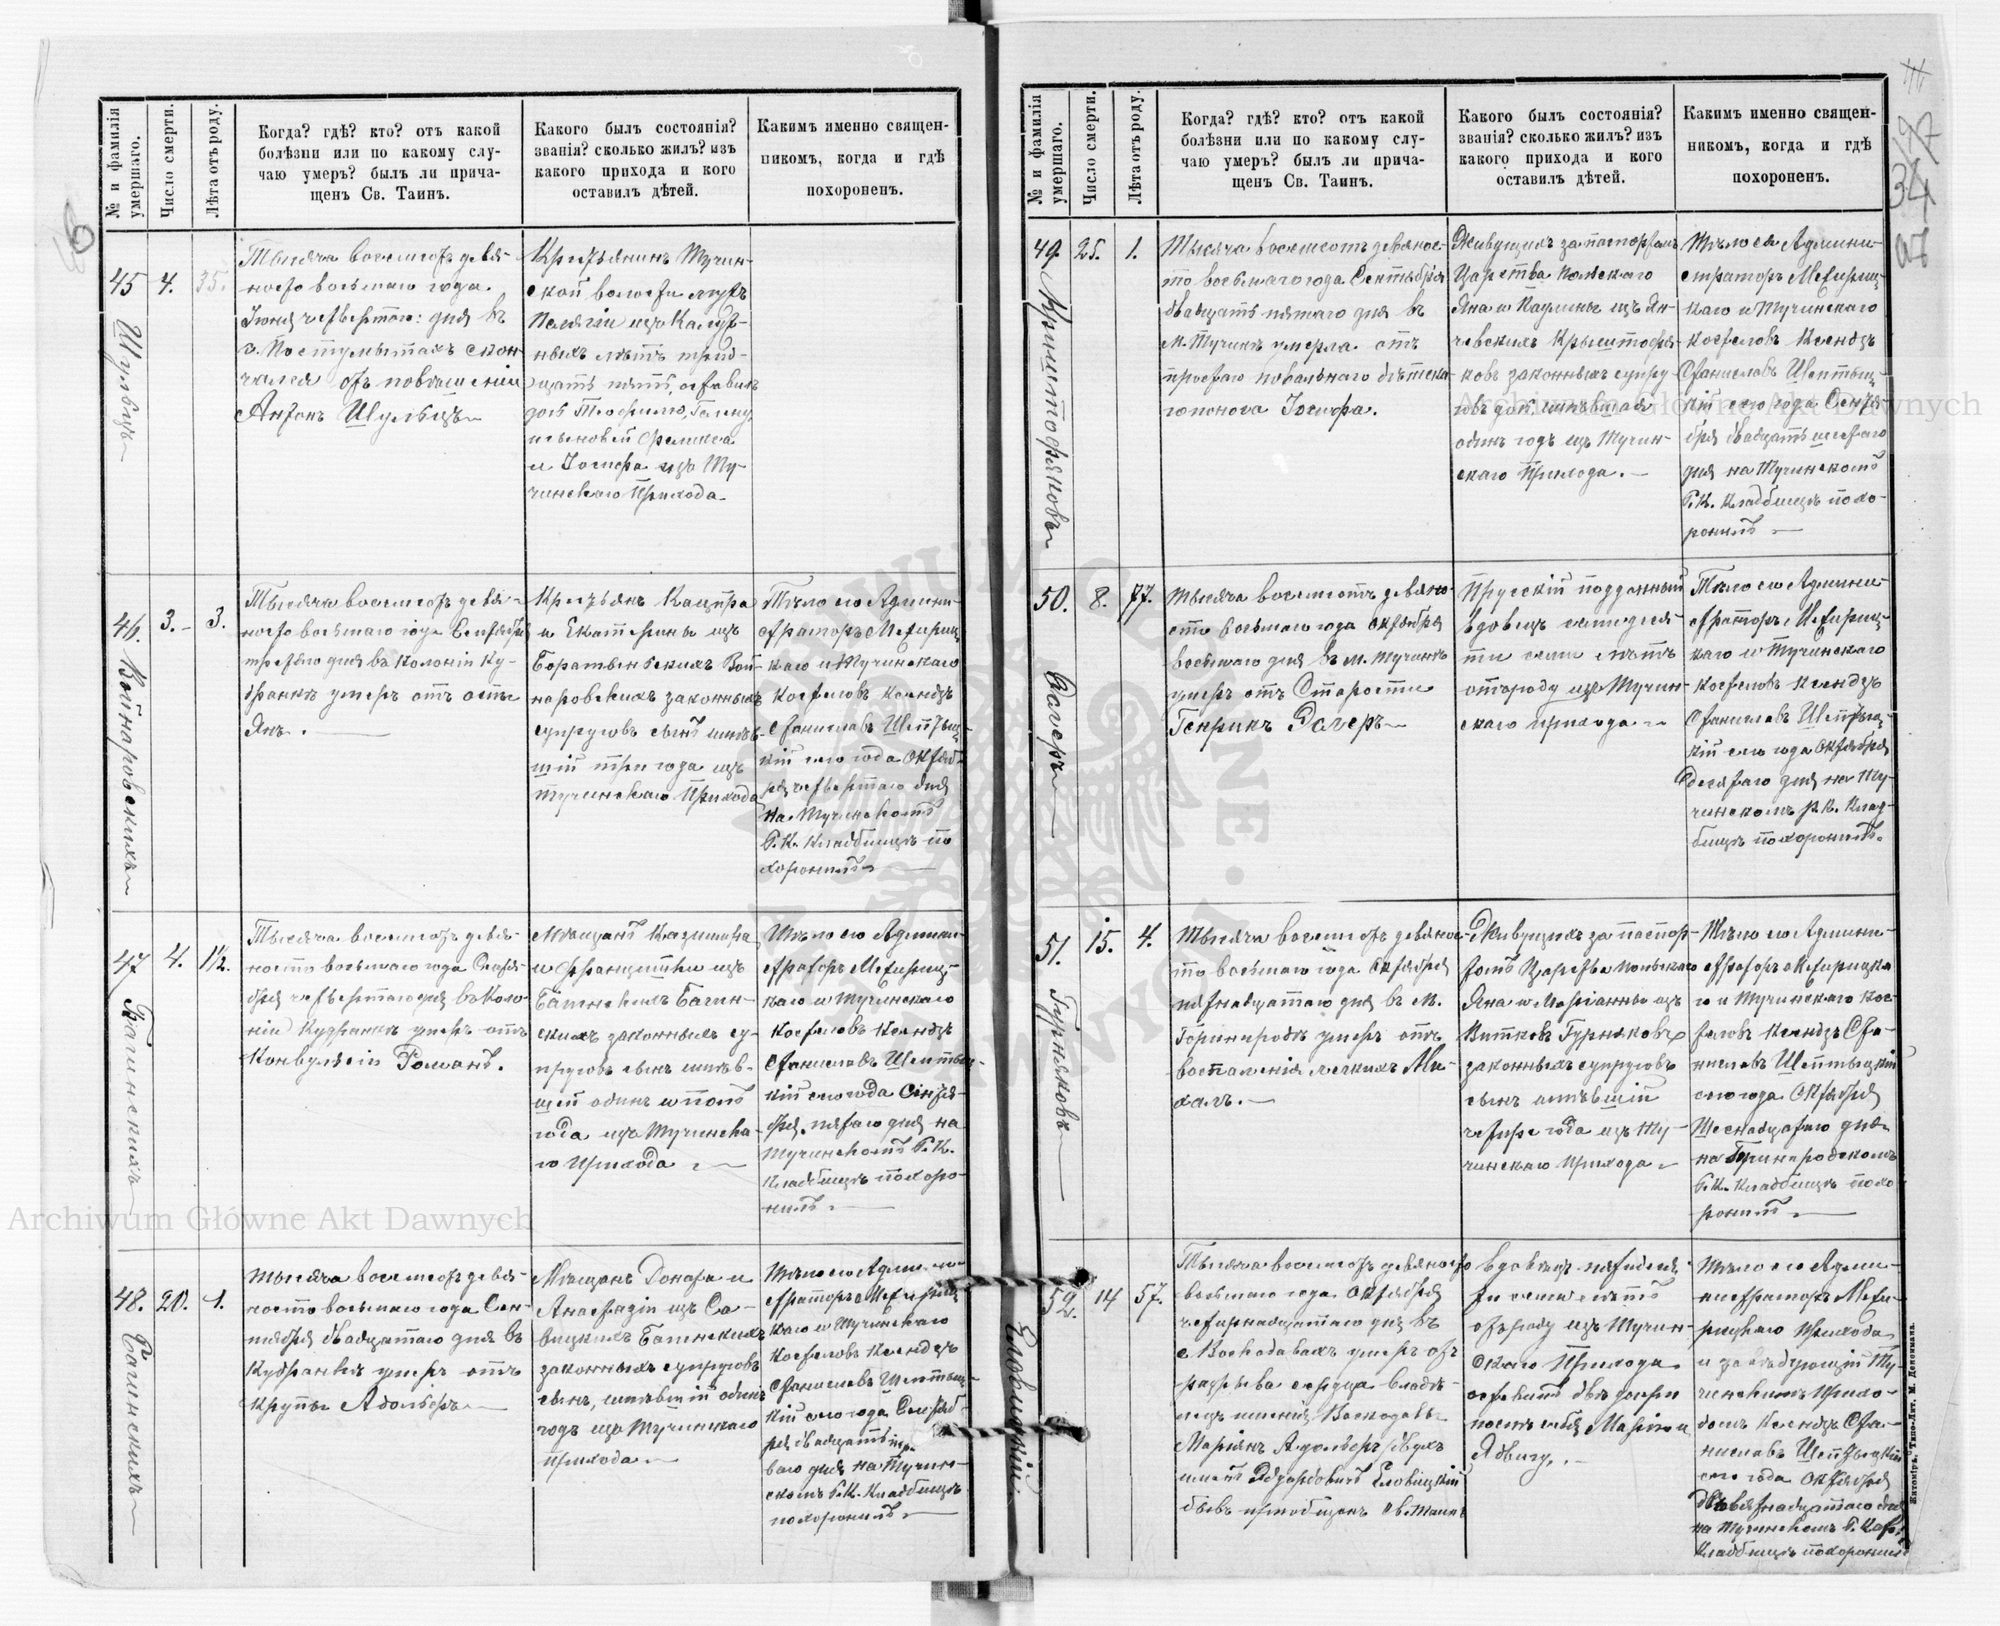 № и фамилія умершаго.
Число смерти.
Лѣта отъ роду.
Когда? гдѣ? кто? отъ какой
болѣзни или по какому слу-
чаю умеръ? былъ ли прича-
щенъ Св. Таинъ.
Какого былъ состоянія?
званія? сколько жилъ? изъ
какого прихода и кого
оставилъ дѣтей.
Какимъ именно священ-
никомъ, когда и гдѣ
похороненъ.
45
Шульцъ
4.
35.
Тысяча восемсотъ девя-
носто восьмаго года
Іюня четвертаго дня въ
скон-
чался отъ
Антонъ Шульцъ
Крестьянинъ Тучин-
ской волости мужъ
лѣтъ трид-
цать пять, оставилъ
сыновей Феликса
и Іосифа изъ Ту-
чинскаго Прихода
46.
Войнаровскихъ
3.
3.
Тысяча восемсотъ девя-
носто восьмаго года Сентября
третьяго дня въ колоніи Ку-
дранкѣ умеръ отъ оспы
Янъ.
Крестьянъ Каспра
и Екатерины изъ
Вой-
наровскихъ законныхъ
супруговъ сынъ имѣв-
шій три года изъ
Тучинскаго Прихода
Тѣло его Админи-
страторъ Межириц-
каго и Тучинскаго
костеловъ Ксендзъ
Станиславъ Шептыц-
кій сего года Октяб-
ря четвертаго дня
на Тучинскомъ
Р. К. Кладбищѣ по-
хоронилъ
47
Багинскихъ
4.
1½.
Тысяча восемсотъ девя-
носто восьмаго года Сентя-
бря четвертаго дня въ Коло-
ніи Кудранкѣ умеръ отъ
Конвульсіи Романъ.
Мѣщанъ Казимира
и Францишки изъ
Багин-
скихъ законныхъ су-
пруговъ сынъ имѣв-
шій одинъ и полъ
года изъ Тучинска-
го Прихода
Тѣло его Админи-
страторъ Межириц-
каго и Тучинскаго
Костеловъ Ксендзъ
Станиславъ Шептыц-
кій сего года Сентя-
бря пятаго дня на
Тучинскомъ Р. К.
Кладбищѣ похоро-
нилъ
48.
Багинскихъ
20.
1.
Тысяча восемсотъ девя-
носто восьмаго года Сен-
тября двадцатаго дня въ
Кудранкѣ умеръ отъ
крупы Адольфъ
Мѣщанъ Доната и
Анастазіи изъ Са-
вицкихъ Багинскихъ
законныхъ супруговъ
сынъ, имѣвшій одинъ
годъ изъ Тучинскаго
прихода
Тѣло его Админи-
страторъ Межириц-
каго и Тучинскаго
Костеловъ Ксендзъ
Станиславъ Шептыц-
кій сего года Сентяб-
ря двадцать пер-
ваго дня на Тучин-
скомъ Р. К. Кладбищѣ
похоронилъ
№ и фамилія умершаго.
Число смерти.
Лѣта отъ роду.
Когда? гдѣ? кто? отъ какой
болѣзни или по какому слу-
чаю умеръ? былъ ли прича-
щенъ Св. Таинъ.
Какого былъ состоянія?
званія? сколько жилъ? изъ
какого прихода и кого
оставилъ дѣтей.
Какимъ именно священ-
никомъ, когда и гдѣ
похороненъ.
49.
Криштофяковъ
25.
1.
Тысяча восемсотъ девянос-
то восьмаго года Сентября
двадцать пятаго дня въ
м. Тучинѣ умерла отъ
Іозефа.
Живущихъ за паспортомъ
Царства Польскаго
Яна и Паулины изъ Ян-
чевскихъ Крыштофя-
ковъ законныхъ супру-
говъ дочь имѣвшая
одинъ годъ изъ Тучин-
скаго Прихода.
Тѣло ея Админи-
страторъ Межириц-
каго и Тучинскаго
костеловъ Ксендзъ
Станиславъ Шептыц-
кій сего года Сентя-
бря двадцать шестаго
дня на Тучинскомъ
Р. К. Кладбищѣ похо-
ронилъ
50.
Вагеръ
8.
77.
Тысяча восемсотъ девяно-
сто восьмаго года Октября
восьмаго дня въ м. Тучинѣ
умеръ отъ Старости
Генрикъ Вагеръ
Прусскій подданный
вдовецъ семидеся-
ти семи лѣтъ
отъ роду изъ Тучин-
скаго прихода
Тѣло его Админи-
страторъ Межириц-
каго и Тучинскаго
костеловъ Ксендзъ
Станиславъ Шептыц-
кій сего года Октября
десятаго дня на Ту-
чинскомъ Р. К. Клад-
бищѣ похоронилъ.
51.
Гурняковъ
15.
4.
Тысяча восемсотъ девянос-
то восьмаго года Октября
пятнадцатаго дня въ м.
Горинградѣ умеръ отъ
воспаленія легкихъ Ми-
халъ.
Живущихъ за паспор-
томъ Царства Польскаго
Яна и Маріанны изъ
Витковъ Гурняковъ
законныхъ супруговъ
сынъ имѣвшій
четыре года изъ Ту-
чинскаго Прихода
Тѣло его Админи-
страторъ Межирицка-
го и Тучинскаго Кос-
теловъ Ксендзъ Ста-
ниславъ Шептыцкій
сего года Октября
Шеснадцатаго дня
на Горинградскомъ
Р. К. Кладбищѣ похо-
ронилъ
52.
Еловицкій
14
57.
Тысяча восемсотъ девяносто
восьмаго года Октября
четырнадцатаго дня въ
с. Воскодавахъ умеръ отъ
разрыва сердца владѣ-
лецъ имѣнія Воскодавы
Маріянъ Адольфъ двухъ
именъ Эдуардовичъ Еловицкій
бывъ пріобщенъ Св. Таинъ
вдовецъ пятидеся-
ти семи лѣтъ
отъ роду изъ Тучин-
скаго Прихода
оставилъ двѣ дочери
послѣ себя Марію и
Ядвигу.
Тѣло его Адми-
нистраторъ Межи-
рицкаго Прихода
и завѣдующій Ту-
чинскимъ Прихо-
домъ Ксендзъ Ста-
ниславъ Шептыцкій
сего года Октября
девятнадцатаго дня
на Тучинскомъ Р. Кат.
Кладбищѣ похоронилъ
Житоміръ, Типо-Лит. М. Дененмана.
Archiwum Główne Akt Dawnych
Archiwum Główne Akt Dawnych